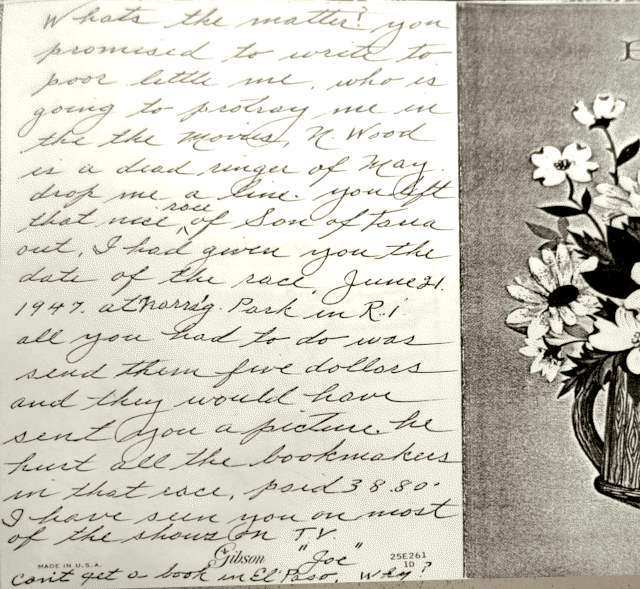 Whats the matter? you
promised to write to
poor little me, who is
going to protray me in
the the movies, N. Wood
is a dead ringer of May.
drop me a line. you left
that nice race of Son of Tara
out, I had given you the
date of the race, June 21.
1947. at Narrag. Park in R.I
all you had to do was
send them five dollars
and they would have
sent you a picture. he
hurt all the bookmakers
in that race, paid 38.80.
I have seen you on most
of the shows on T.V.
"Joe"
MADE IN U.S.A.
Gibson
25E261
1D
Can't get a book in El Paso, Why?